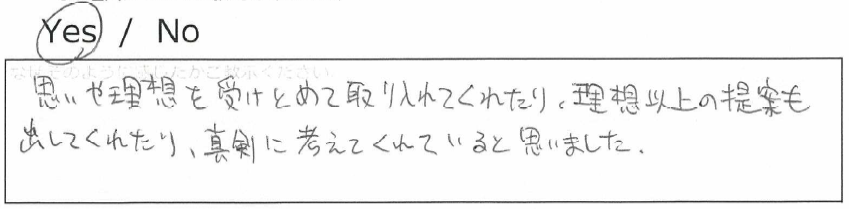 Yes / No
なぜそのように感じたかご教示ください
思いや理想を受けとめて取り入れてくれたり、理想以上の提案も
出してくれたり、真剣に考えてくれていると思いました。